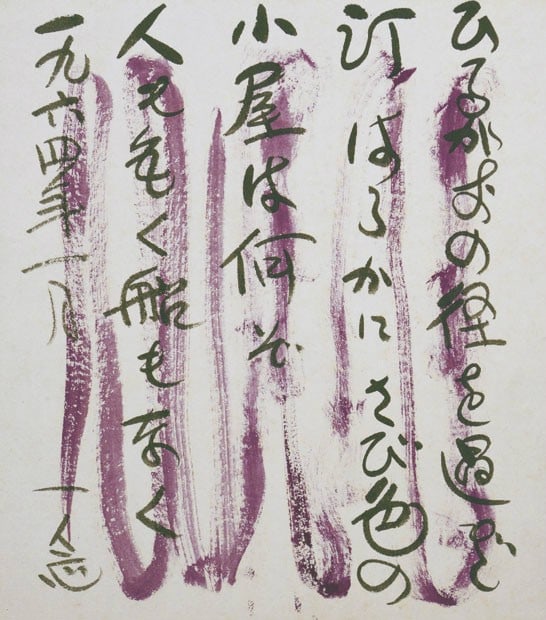 ひるがおの径を過ぎて
汀はるかにさび色の
小屋は何ぞ
人もなく船もなく
一九六四年一月 一念